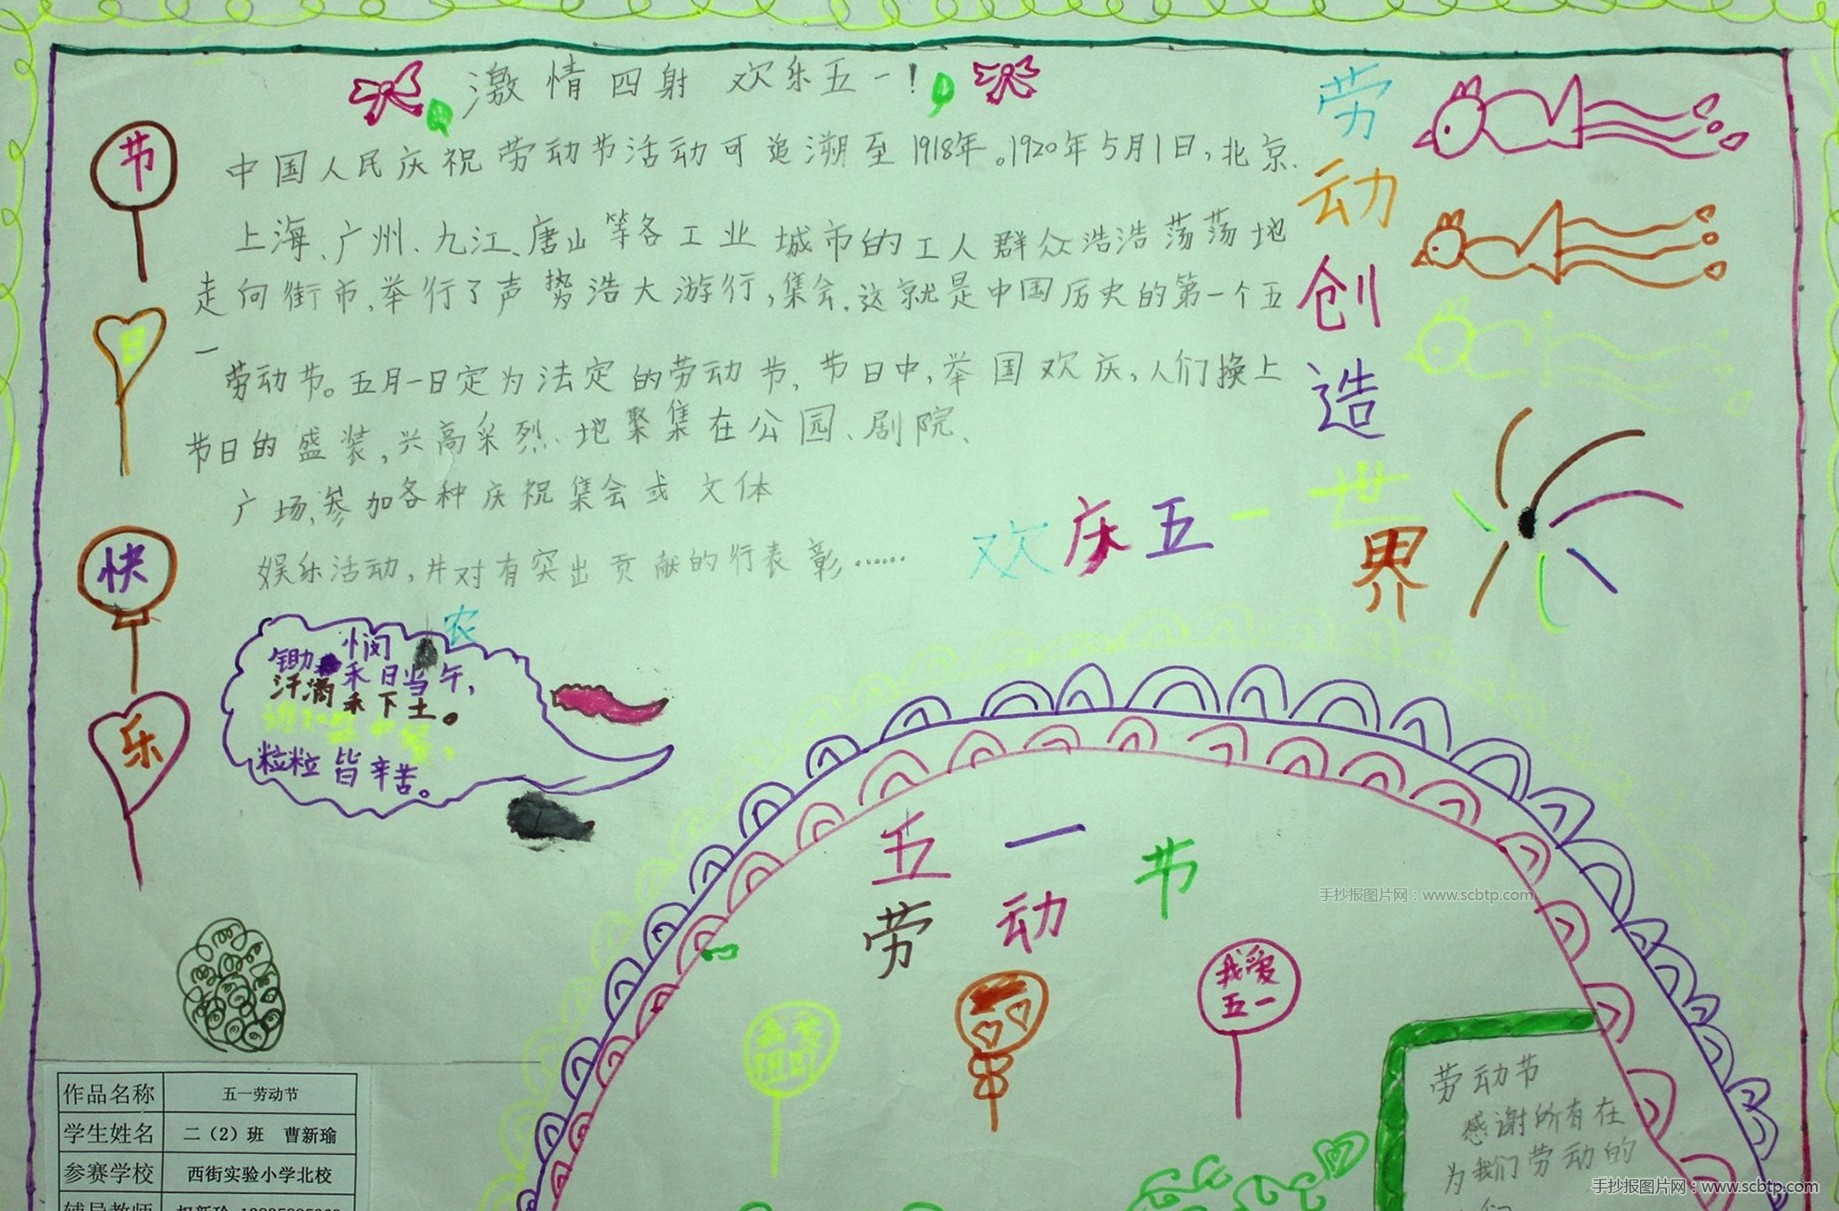 激情四射 欢乐五一!
中国人民庆祝劳动节活动可追溯至1918年。1920年5月1日,北京、
上海、广州、九江、唐山等各工业城市的工人群众浩浩荡荡地
走向街市,举行了声势浩大游行,集会,这就是中国历史的第一个五
一
劳动节。五月一日定为法定的劳动节,节日中,举国欢庆,人们换上
节日的盛装,兴高采烈、地聚集在公园、剧院、
广场、参加各种庆祝集会或文体
娱乐活动,并对有突出贡献的行表彰……
节
日
快
乐
劳
动
创
造
世
界
欢庆五一
悯
农
锄禾日当午,
汗滴禾下土。
粒粒皆辛苦。
五一
劳动节
我爱
五一
劳动节
感谢所有在
为我们劳动的
手抄报图片网:www.scbtp.com
作品名称 五一劳动节
学生姓名 二(2)班 曹新瑜
参赛学校 西街实验小学北校
辅导教师
手抄报图片网:www.scbtp.com